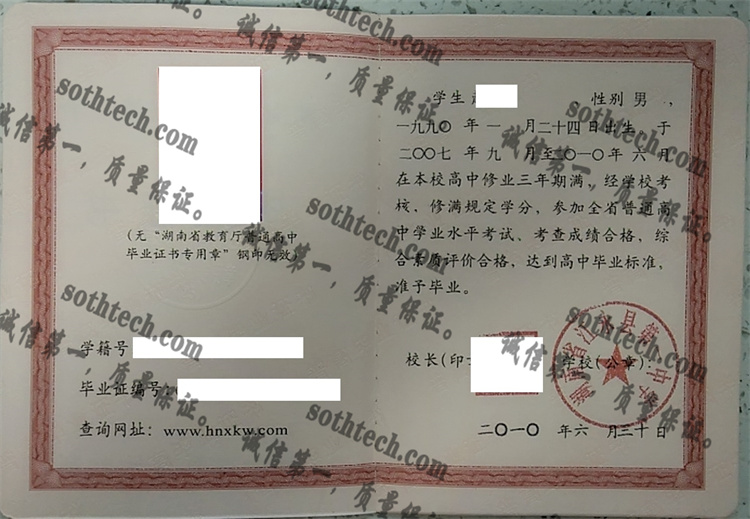 (无“湖南省教育厅普通高中
毕业证书专用章”钢印无效)
学籍号
毕业证编号:
查询网址: www.hnxkw.com
学生 性别 男 ,
一九九〇 年 一 月二十四日出生, 于
二〇〇七 年 九 月至二〇一〇年 六 月
在本校高中修业三年期满, 经学校考
核, 修满规定学分, 参加全省普通高
中学业水平考试、考查成绩合格, 综
合素质评价合格, 达到高中毕业标准,
准予毕业。
校长(印 学校(公章):
二〇一〇 年六 月三十日
sothtech.com
诚信第一,质量保证。
sothtech.com
诚信第一,质量保证。
sothtech.com
诚信第一,质量保证。
sothtech.com
诚信第一,质量保证。
sothtech.com
诚信第一,质量保证。
sothtech.com
诚信第一,质量保证。